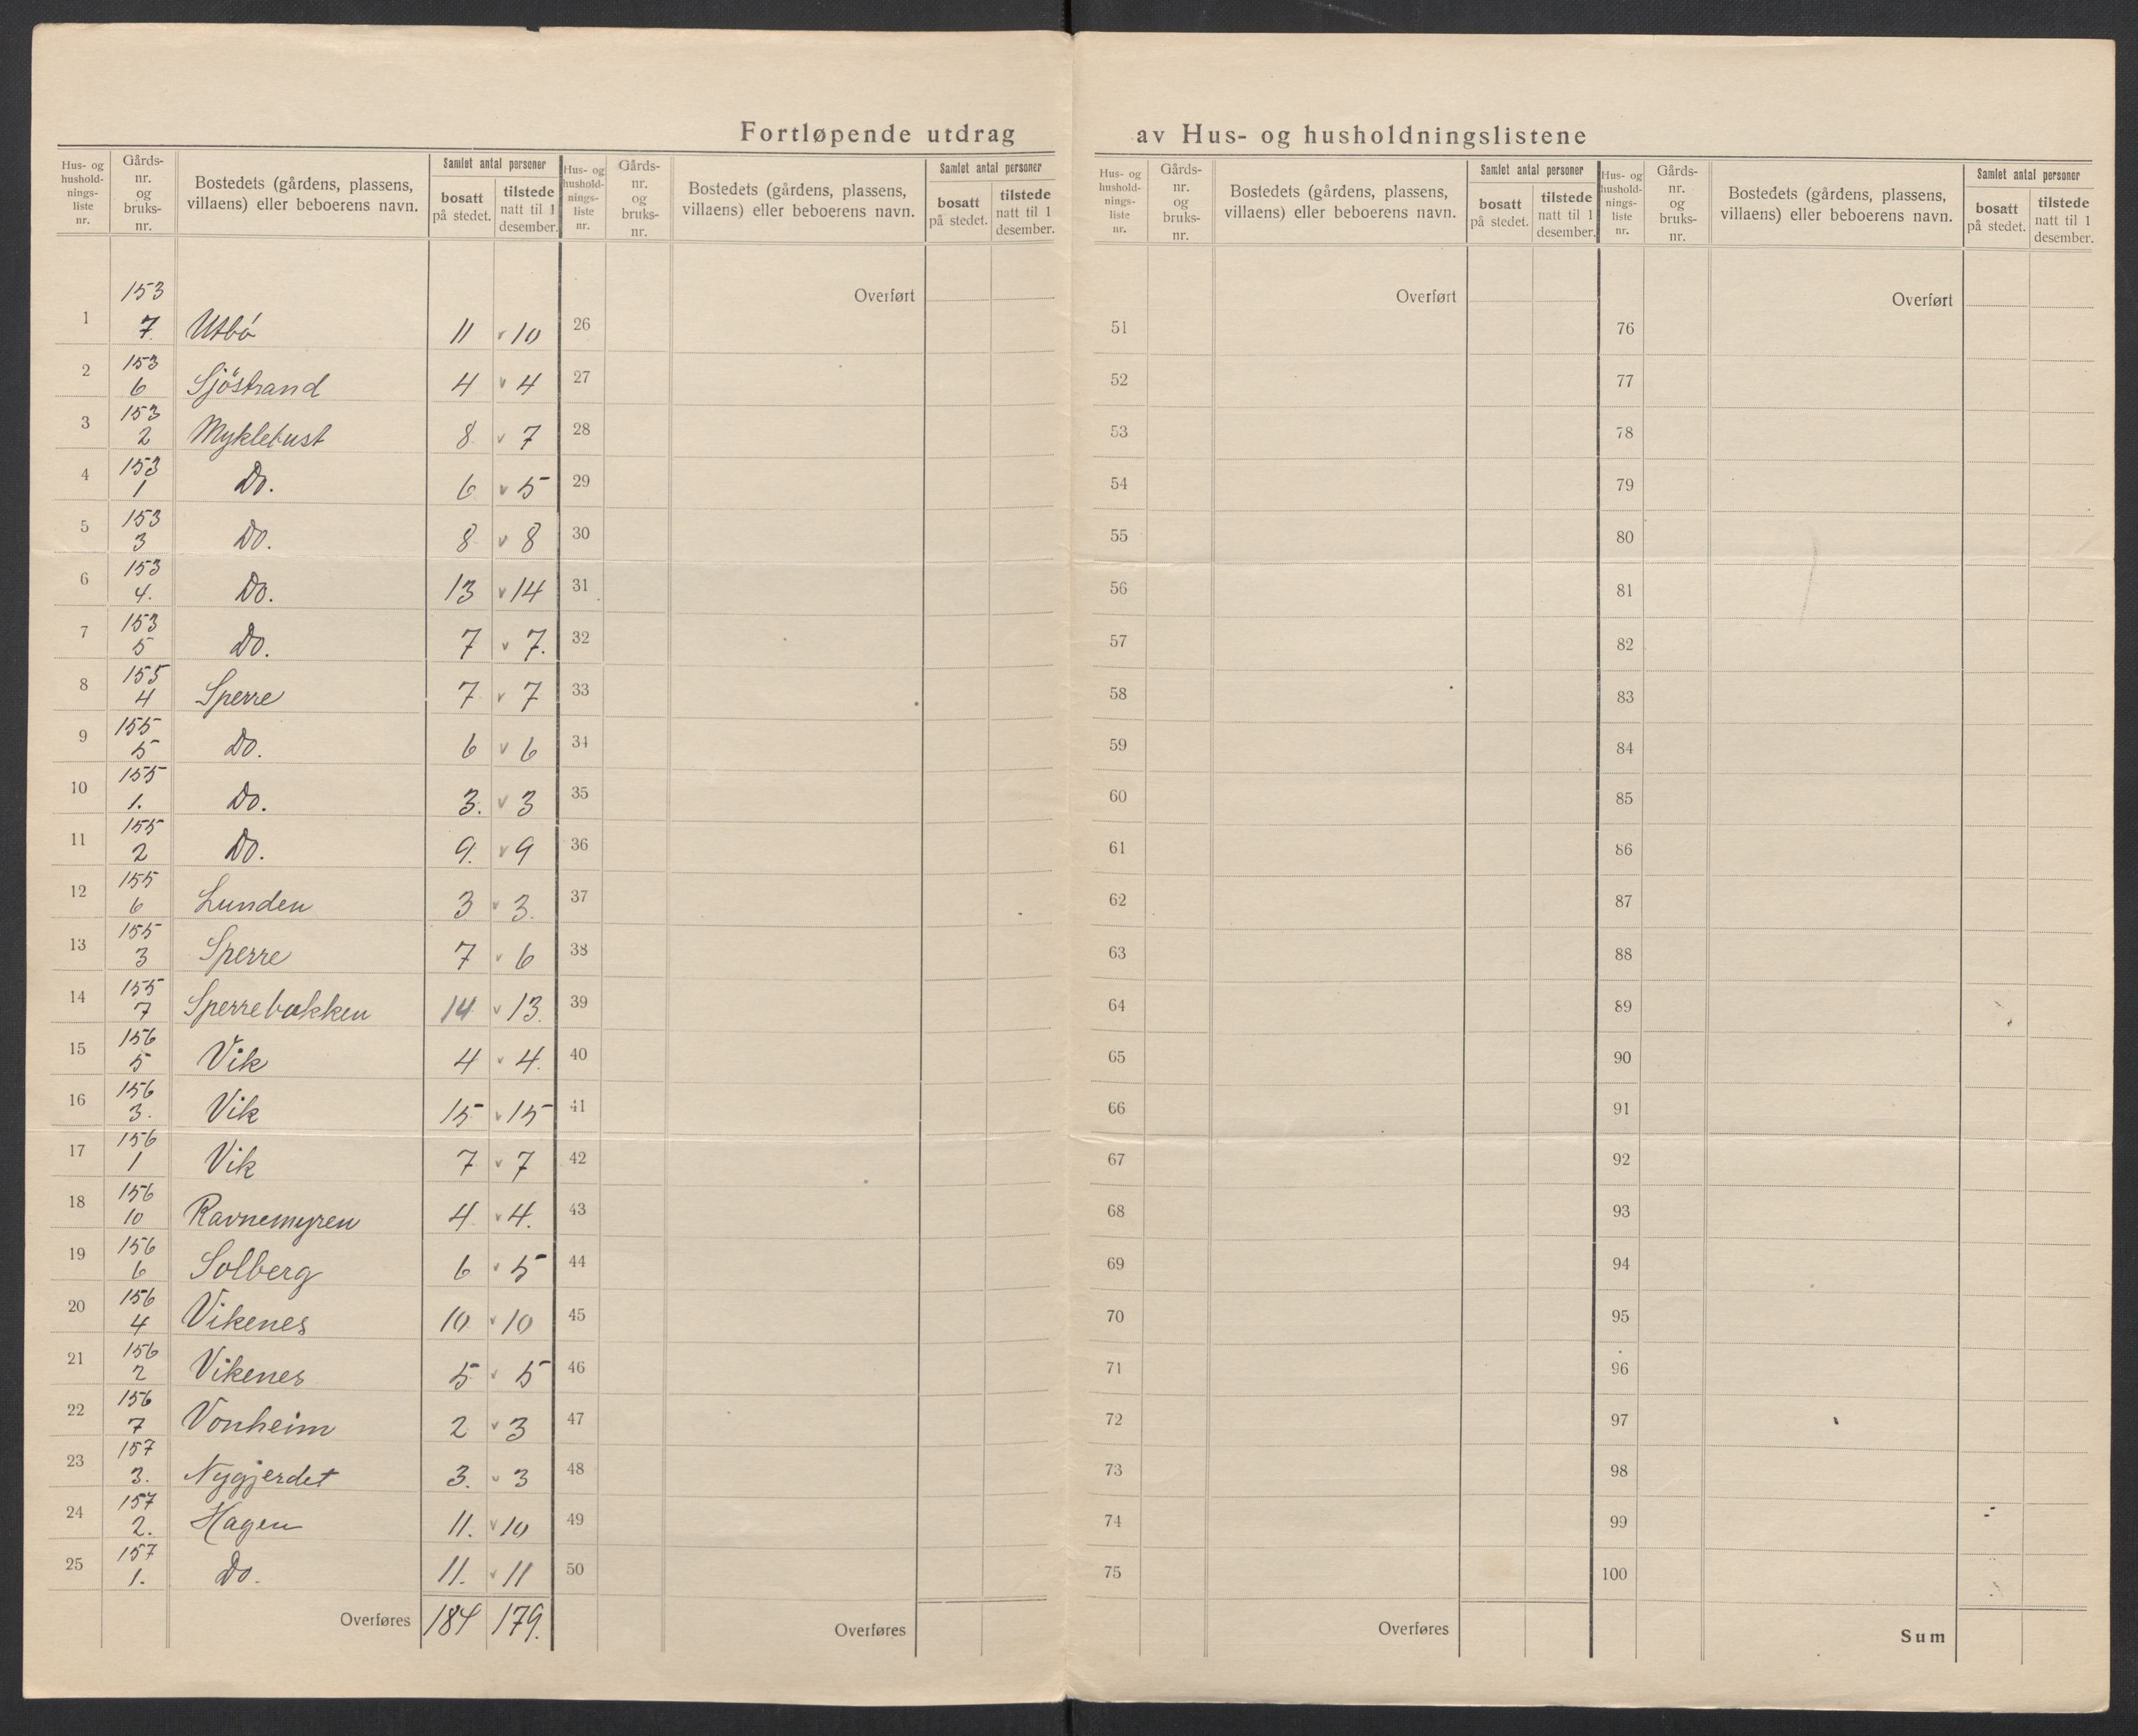 Fortløpende utdrag av Hus- og husholdningslistene
Hus- og hushold-nings-liste nr. | Gårds-nr. og bruks-nr. | Bostedets (gårdens, plassens, villaens) eller beboerens navn. | Samlet antal personer | bosatt på stedet. | tilstede natt til 1 desember.
Hus- og hushold-nings-liste nr. | Gårds-nr. og bruks-nr. | Bostedets (gårdens, plassens, villaens) eller beboerens navn. | Samlet antal personer | bosatt på stedet. | tilstede natt til 1 desember.
Hus- og hushold-nings-liste nr. | Gårds-nr. og bruks-nr. | Bostedets (gårdens, plassens, villaens) eller beboerens navn. | Samlet antal personer | bosatt på stedet. | tilstede natt til 1 desember.
Hus- og hushold-nings-liste nr. | Gårds-nr. og bruks-nr. | Bostedets (gårdens, plassens, villaens) eller beboerens navn. | Samlet antal personer | bosatt på stedet. | tilstede natt til 1 desember.
1 153 7. Utbö 11 v 10
2 153 6 Sjöstrand 4 v 4
3 153 2 Myklebust 8 v 7
4 153 1 Do. 6 v 5
5 153 3 Do. 8 v 8
6 153 4. Do. 13 v 14
7 153 5 Do. 7 v 7.
8 155 4 Sperre 7 v 7
9 155 5 Do. 6 v 6
10 155 1. Do. 3. v 3
11 155 2 Do. 9. v 9
12 155 6 Lunden 3 v 3.
13 155 3 Sperre 7 v 6
14 155 7 Sperrebakken 14 v 13.
15 156 5 Vik 4 v 4.
16 156 3. Vik 15 v 15
17 156 1 Vik 7 v 7
18 156 10 Ravnemyren 4 v 4.
19 156 6 Solberg 6 v 5
20 156 4 Vikenes 10 v 10
21 156 2 Vikenes 5 v 5
22 156 7 Vonheim 2 v 3
23 157 3. Nygjerdet 3. v 3
24 157 2. Hagen 11. v 10
25 157 1. Do. 11. v 11
Overføres 184 179.
Overført
26
27
28
29
30
31
32
33
34
35
36
37
38
39
40
41
42
43
44
45
46
47
48
49
50
Overføres
Overført
51
52
53
54
55
56
57
58
59
60
61
62
63
64
65
66
67
68
69
70
71
72
73
74
75
Overføres
Overført
76
77
78
79
80
81
82
83
84
85
86
87
88
89
90
91
92
93
94
95
96
97
98
99
100
Sum